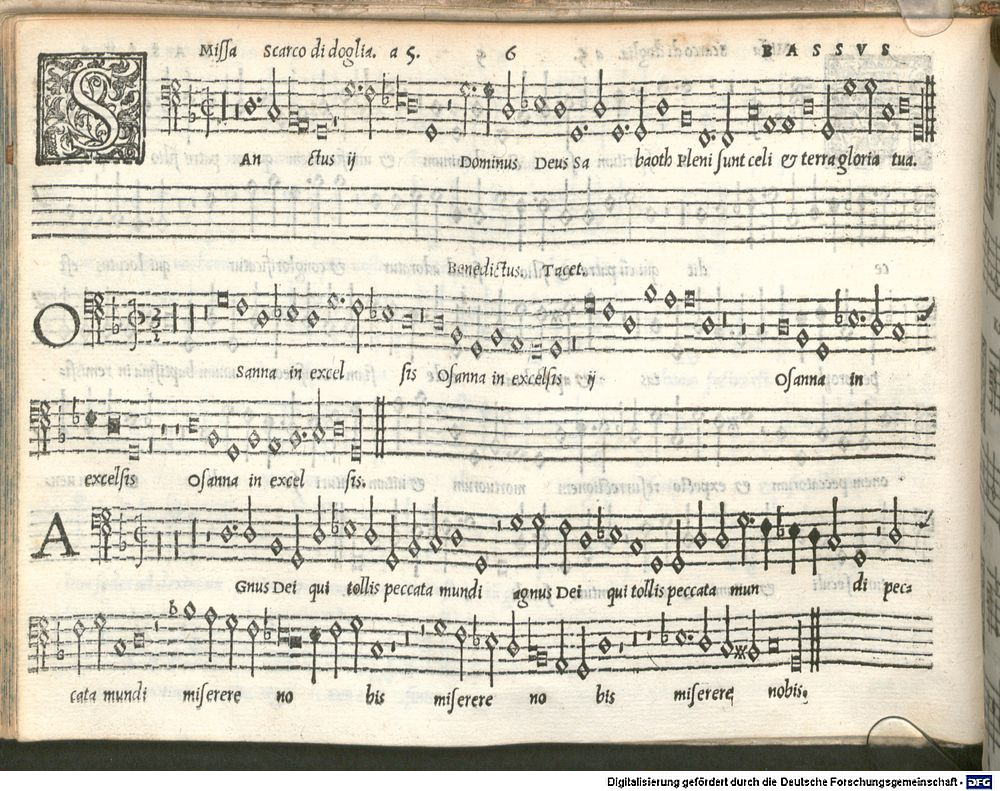 Missa Scarco di doglia. a 5. 6 BASSVS
S An ctus ij Dominus Deus Sa baoth Pleni sunt celi & terra gloria tua.
Benedictus Tacet.
O sanna in excel sis Osanna in excelsis ij Osanna in
excelsis Osanna in excel sis.
A Gnus Dei qui tollis peccata mundi agnus Dei qui tollis peccata mun di pec=
cata mundi miserere no bis miserere no bis miserere nobis.
Digitalisierung gefördert durch die Deutsche Forschungsgemeinschaft - DFG